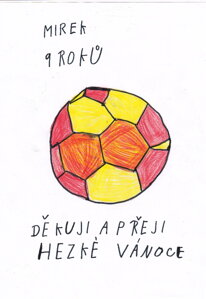 MIREK
9 ROKŮ
DĚKUJI A PŘEJI
HEZKÉ VÁNOCE